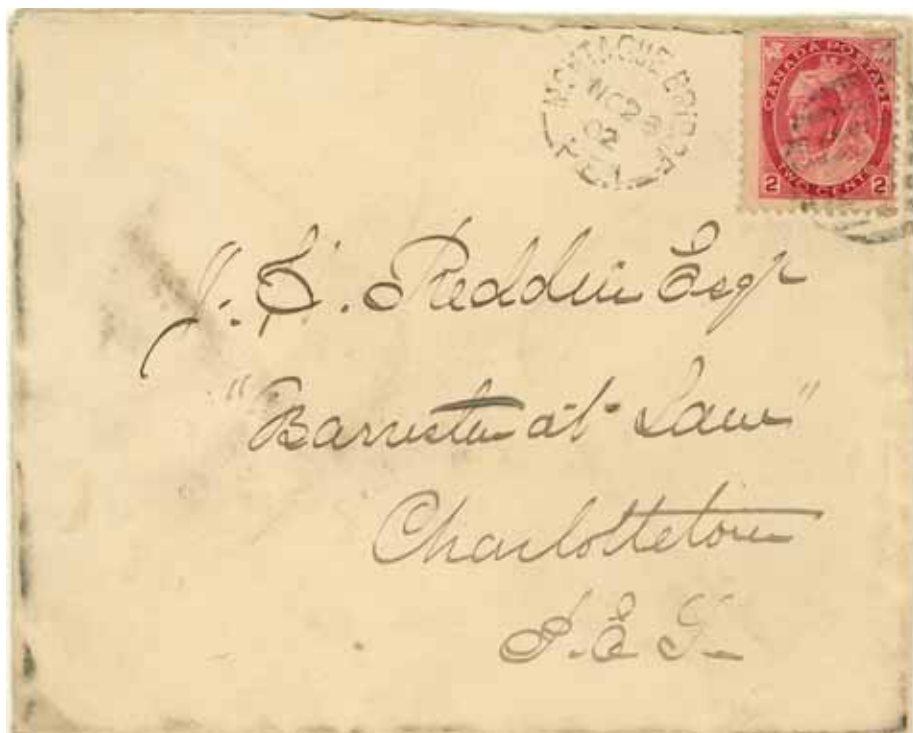 MONTAGUE BRIDGE
NO 28
02
P.E.I.
CANADA POSTAGE
TWO CENTS
2 2
J. H. Reddin Esqr
"Barrister at Law"
Charlottetown
P.E.I.